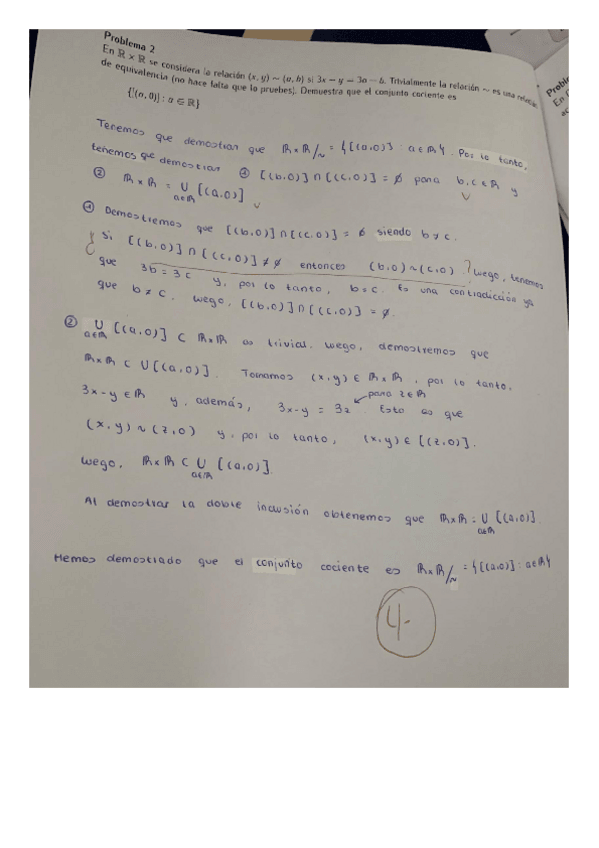 Problema 2
En ℝ × ℝ se considera la relación (x, y) ∼ (a, b) si 3x − y = 3a − b. Trivialmente la relación ∼ es una relación
de equivalencia (no hace falta que lo pruebes). Demuestra que el conjunto cociente es
{[(a, 0)] : a ∈ ℝ}
Tenemos que demostrar que ℝ×ℝ/∼ = {[(a,0)] : a∈ℝ}. Por lo tanto,
tenemos que demostrar ① [(b,0)] ∩ [(c,0)] = ∅ para b,c∈ℝ y
② ℝ×ℝ = ∪ [(a,0)]
a∈ℝ
① Demostremos que [(b,0)] ∩ [(c,0)] = ∅ siendo b ≠ c.
Si [(b,0)] ∩ [(c,0)] ≠ ∅ entonces (b,0) ∼ (c,0). ? Luego, tenemos
que 3b = 3c y, por lo tanto, b = c. Es una contradicción ya
que b ≠ c. Luego, [(b,0)] ∩ [(c,0)] = ∅.
② ∪ [(a,0)] ⊂ ℝ×ℝ es trivial. Luego, demostremos que
a∈ℝ
ℝ×ℝ ⊂ ∪[(a,0)]. Tomamos (x,y) ∈ ℝ×ℝ, por lo tanto,
para z∈ℝ
3x-y ∈ ℝ y, además, 3x-y = 3z. Esto es que
(x,y) ∼ (z,0) y, por lo tanto, (x,y) ∈ [(z,0)].
Luego, ℝ×ℝ ⊂ ∪ [(a,0)].
a∈ℝ
Al demostrar la doble inclusión obtenemos que ℝ×ℝ = ∪ [(a,0)].
a∈ℝ
Hemos demostrado que el conjunto cociente es ℝ×ℝ/∼ = {[(a,0)] : a∈ℝ}
4.